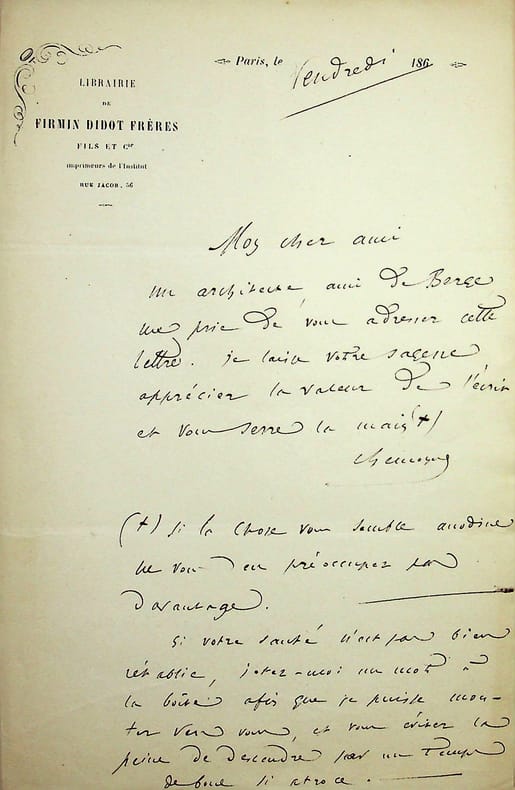 LIBRAIRIE
DE
FIRMIN DIDOT FRÈRES
FILS ET Cie
imprimeurs de l'Institut
RUE JACOB, 56
Paris, le Vendredi 186
Mon cher ami
un architecte ami de Berge
me prie de vous adresser cette
lettre. je laisse votre sagesse
apprécier la valeur de l'écrit
et vous serre la main (+)
(+) Si la chose vous semble anodine
ne vous en préoccupez pas
davantage.
Si votre santé n'est pas bien
rétablie, jetez-moi un mot à
la boîte afin que je puisse mon-
ter vers vous, et vous éviter la
peine de descendre par un temps
de boue si atroce.